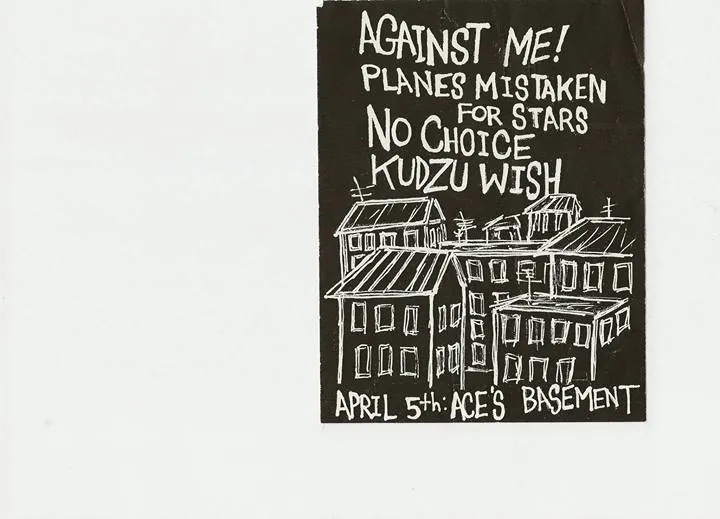 AGAINST ME!
PLANES MISTAKEN
FOR STARS
NO CHOICE
KUDZU WISH
APRIL 5th: ACE'S BASEMENT